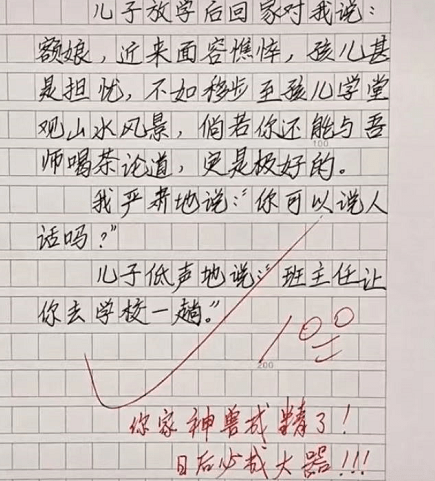 儿子放学后回家对我说:
额娘,近来面容憔悴,孩儿甚
是担忧,不如移步至孩儿学堂
观山水风景,倘若你还能与吾
师喝茶论道,更是极好的。
100
我严肃地说:“你可以说人
话吗?”
儿子低声地说:“班主任让
你去学校一趟。”
100
200
你家神兽成精了!
日后必成大器!!!